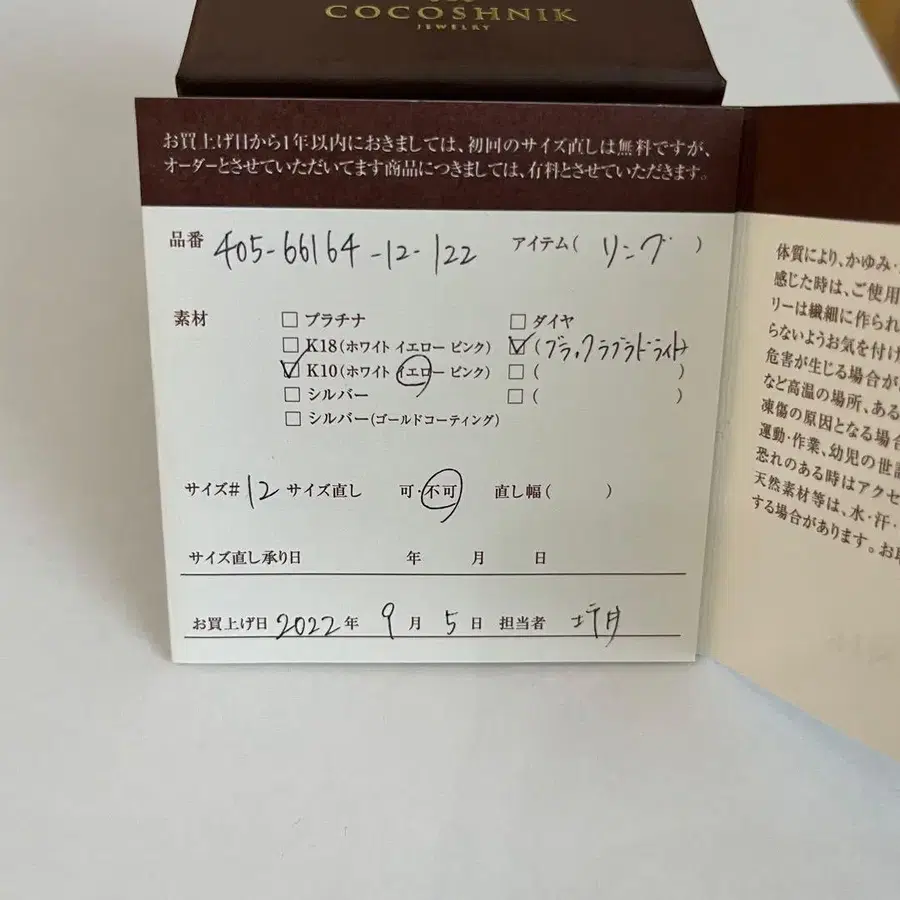 COCOSHNIK
JEWELRY
お買上げ日から1年以内におきましては、初回のサイズ直しは無料ですが、
オーダーとさせていただいてます商品につきましては、有料とさせていただきます。
品番 405-66164-12-122 アイテム( リング )
素材 □プラチナ □ダイヤ
□K18(ホワイト イエロー ピンク) ☑(ブラックラブラドライト)
☑K10(ホワイト イエロー ピンク) □( )
□シルバー □( )
□シルバー(ゴールドコーティング)
サイズ# 12 サイズ直し 可・不可 直し幅( )
サイズ直し承り日 年 月 日
お買上げ日 2022年 9月 5日 担当者
体質により、かゆみ・
感じた時は、ご使用
リーは繊細に作られ
らないようお気を付け
危害が生じる場合が
など高温の場所、ある
凍傷の原因となる場合
運動・作業、幼児の世話
恐れのある時はアクセ
天然素材等は、水・汗・
する場合があります。お取